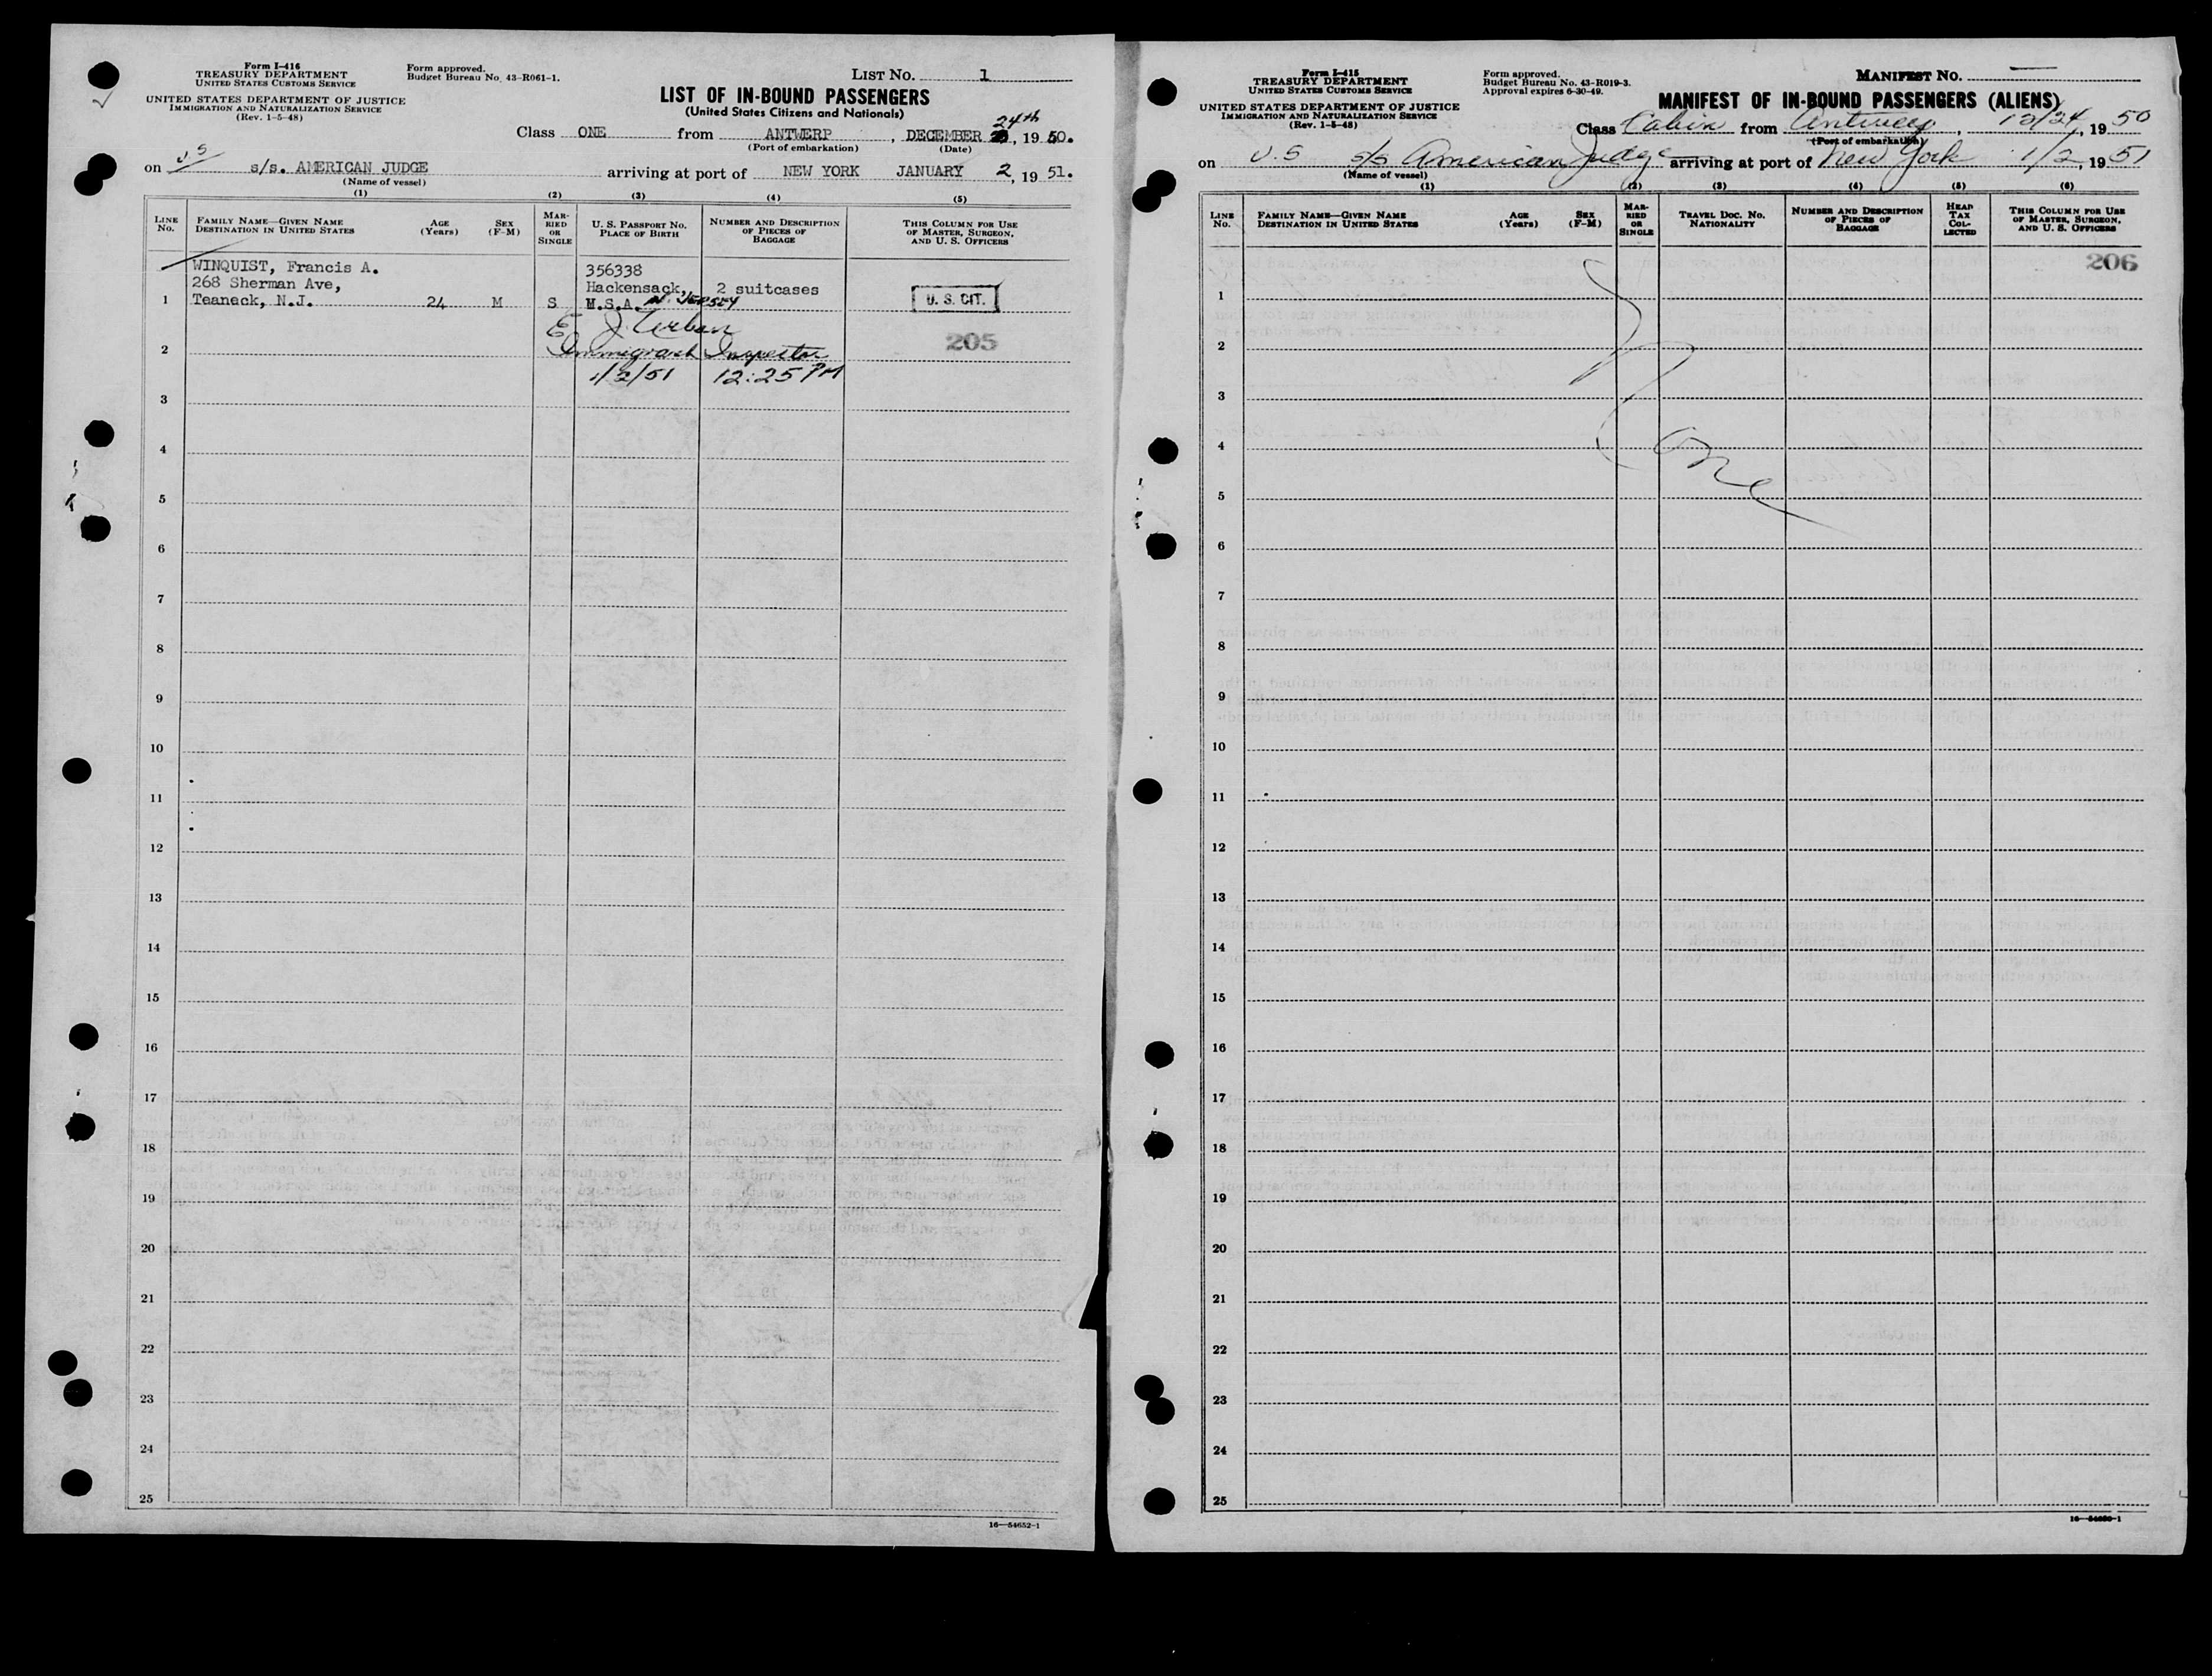 Form I-416
TREASURY DEPARTMENT
UNITED STATES CUSTOMS SERVICE
UNITED STATES DEPARTMENT OF JUSTICE
IMMIGRATION AND NATURALIZATION SERVICE
(Rev. 1-5-48)
Form approved.
Budget Bureau No. 43-R061-1.
LIST NO. 1
LIST OF IN-BOUND PASSENGERS
(United States Citizens and Nationals)
24th
Class ONE from ANTWERP, DECEMBER , 19 50.
(Port of embarkation) (Date)
on U.S s/s. AMERICAN JUDGE arriving at port of NEW YORK JANUARY 2, 19 51.
(Name of vessel)
(1) (2) (3) (4) (5)
LINE No. FAMILY NAME—GIVEN NAME DESTINATION IN UNITED STATES AGE (Years) SEX (F-M) MARRIED OR SINGLE U. S. PASSPORT NO. PLACE OF BIRTH NUMBER AND DESCRIPTION OF PIECES OF BAGGAGE THIS COLUMN FOR USE OF MASTER, SURGEON, AND U. S. OFFICERS
WINQUIST, Francis A. 356338
268 Sherman Ave, Hackensack, 2 suitcases
1 Teaneck, N.J. 24 M S U.S.A. N. JERSEY U. S. CIT.
E J. Urban
2 Immigrant Inspector 205
1/2/51 12:25 PM
3
4
5
6
7
8
9
10
11
12
13
14
15
16
17
18
19
20
21
22
23
24
25
16—54652-1
Form I-415
TREASURY DEPARTMENT
UNITED STATES CUSTOMS SERVICE
UNITED STATES DEPARTMENT OF JUSTICE
IMMIGRATION AND NATURALIZATION SERVICE
(Rev. 1-5-48)
Form approved.
Budget Bureau No. 43-R019-3.
Approval expires 6-30-49.
MANIFEST NO. —
MANIFEST OF IN-BOUND PASSENGERS (ALIENS)
Class Cabin from Antwerp, 12/24, 19 50
(Port of embarkation)
on U.S s/s American Judge arriving at port of New York 1/2, 19 51
(Name of vessel)
(1) (2) (3) (4) (5) (6)
LINE No. FAMILY NAME—GIVEN NAME DESTINATION IN UNITED STATES AGE (Years) SEX (F-M) MARRIED OR SINGLE TRAVEL DOC. NO. NATIONALITY NUMBER AND DESCRIPTION OF PIECES OF BAGGAGE HEAD TAX COLLECTED THIS COLUMN FOR USE OF MASTER, SURGEON, AND U. S. OFFICERS
206
1
2
3
4
None
5
6
7
8
9
10
11
12
13
14
15
16
17
18
19
20
21
22
23
24
25